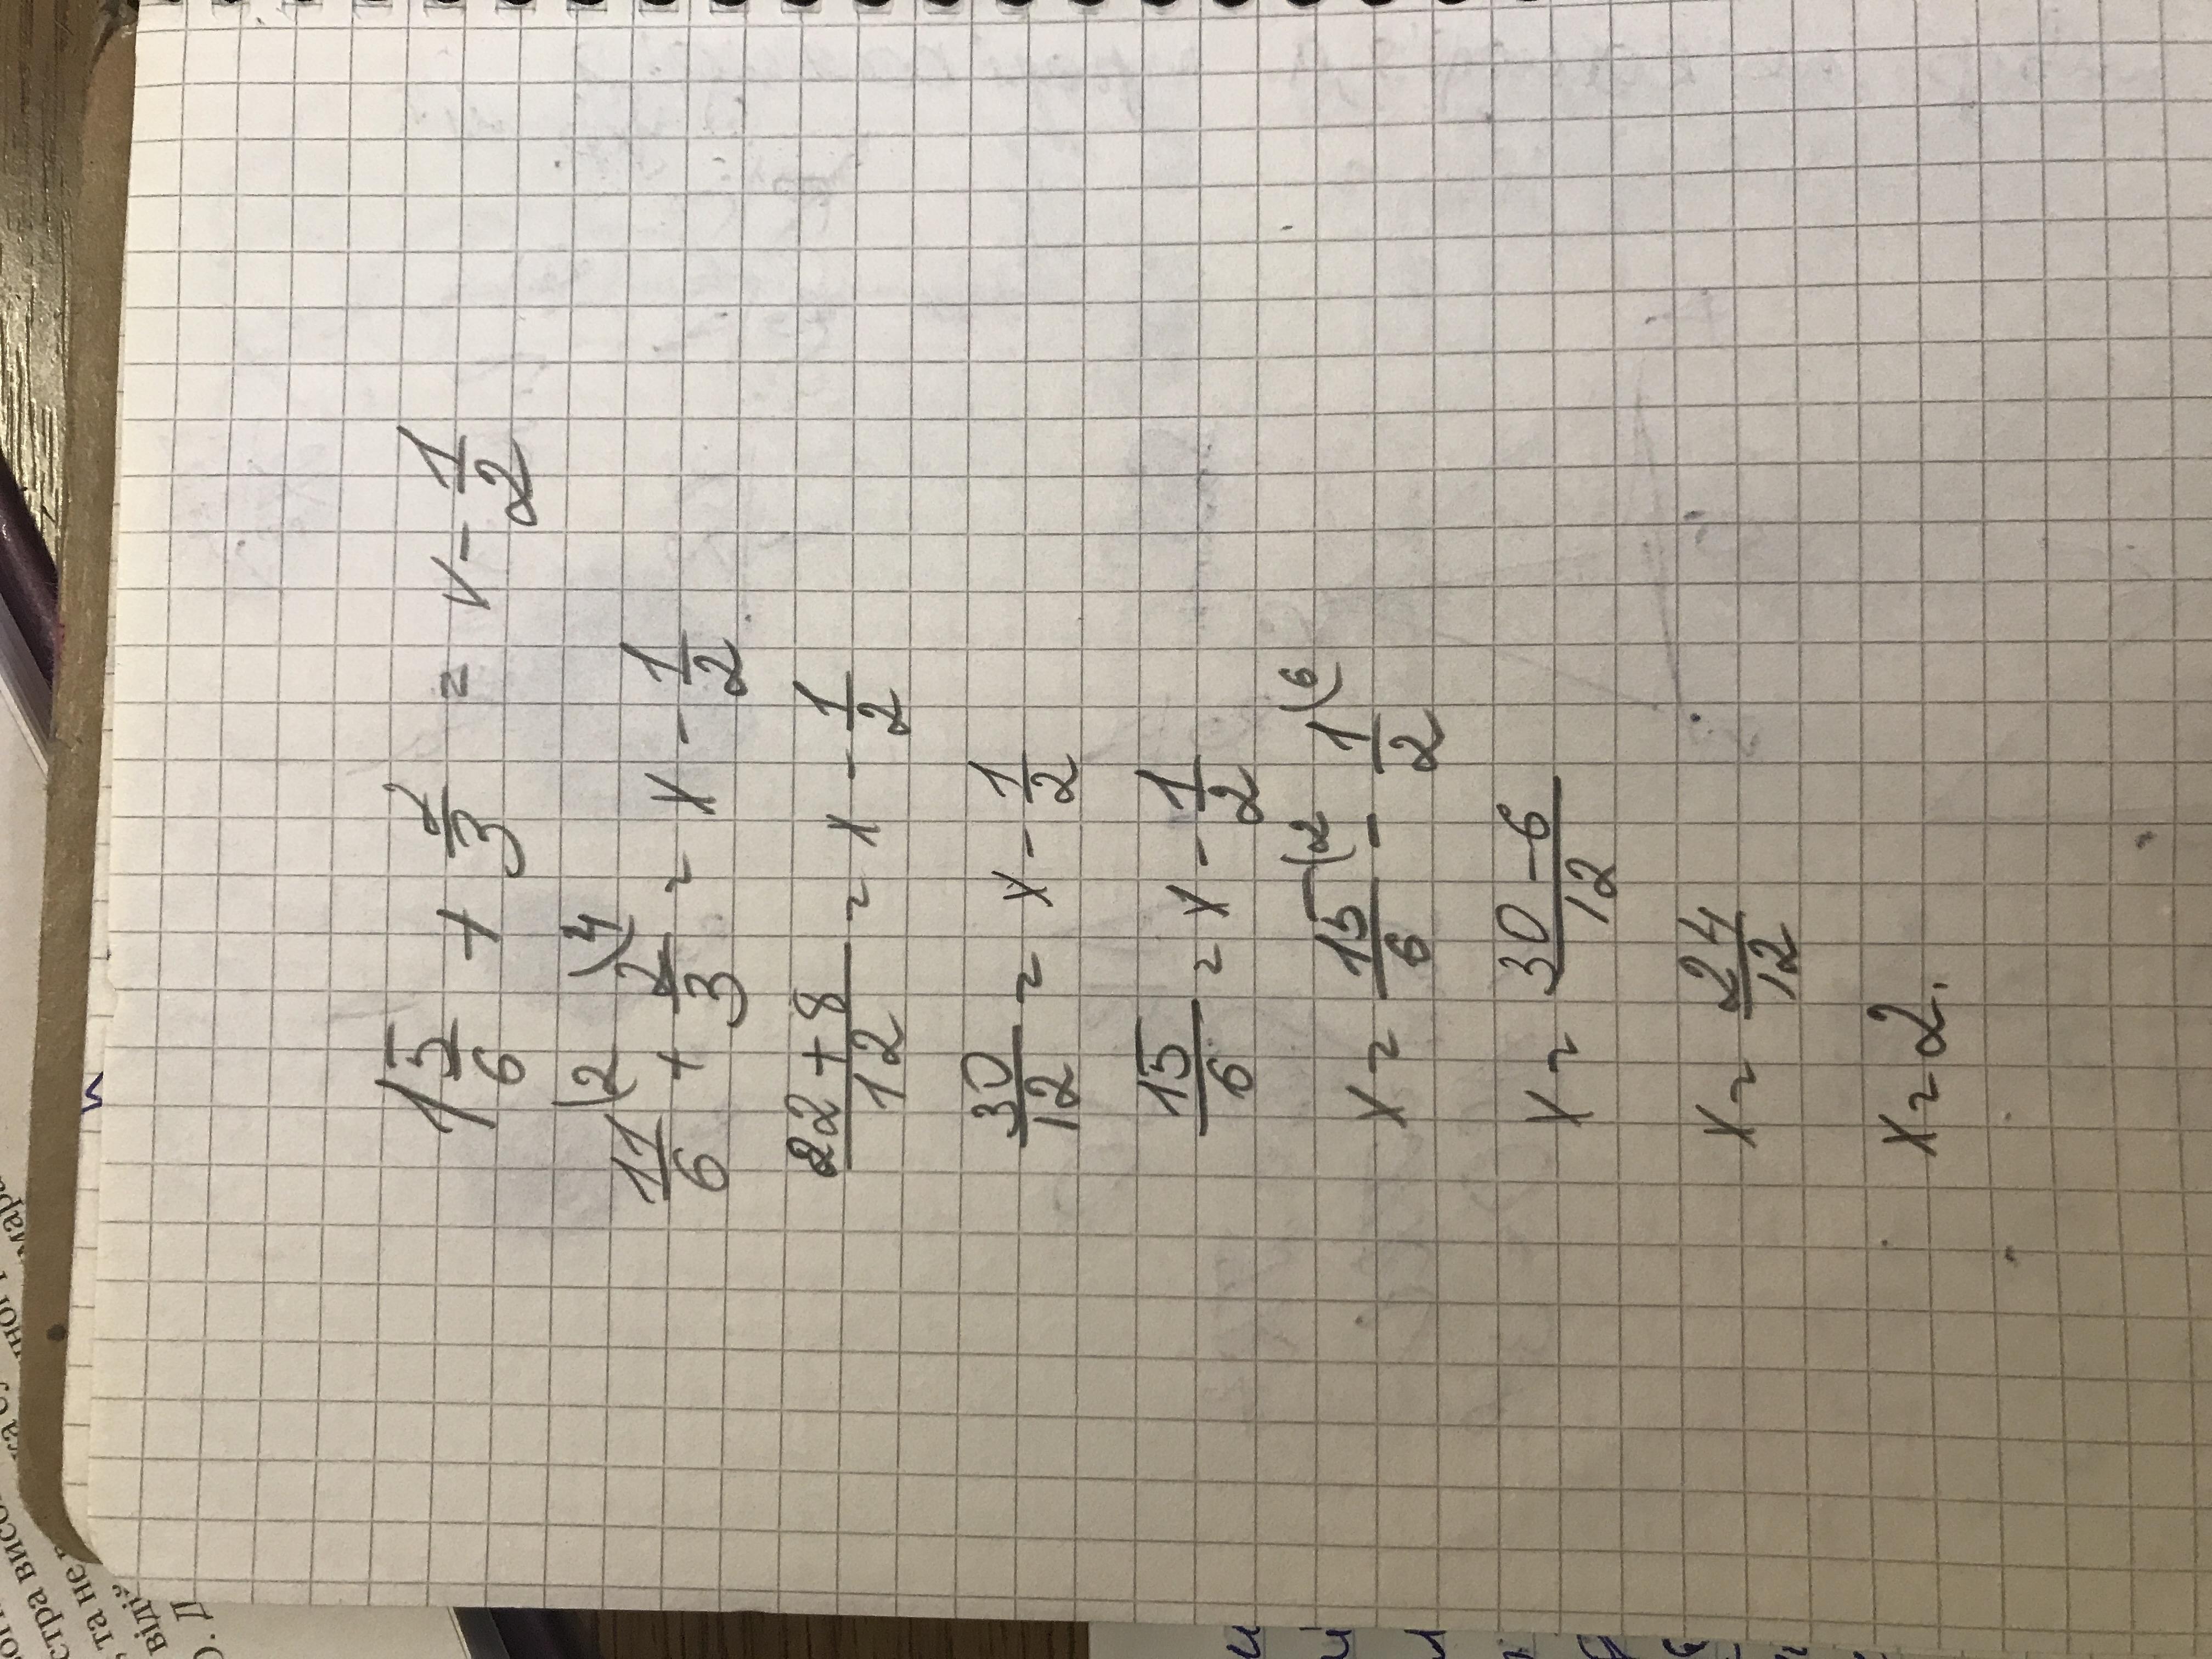 1 5/6 + 2/3 = x - 1/2
11/6 (2 + 2/3 (4 = x - 1/2
22 + 8/12 = x - 1/2
30/12 = x - 1/2
15/6 = x - 1/2
x = 15/6 (2 - 1/2 (6
x = 30 - 6/12
x = 24/12
x = 2.
та не
відіу
О. Д